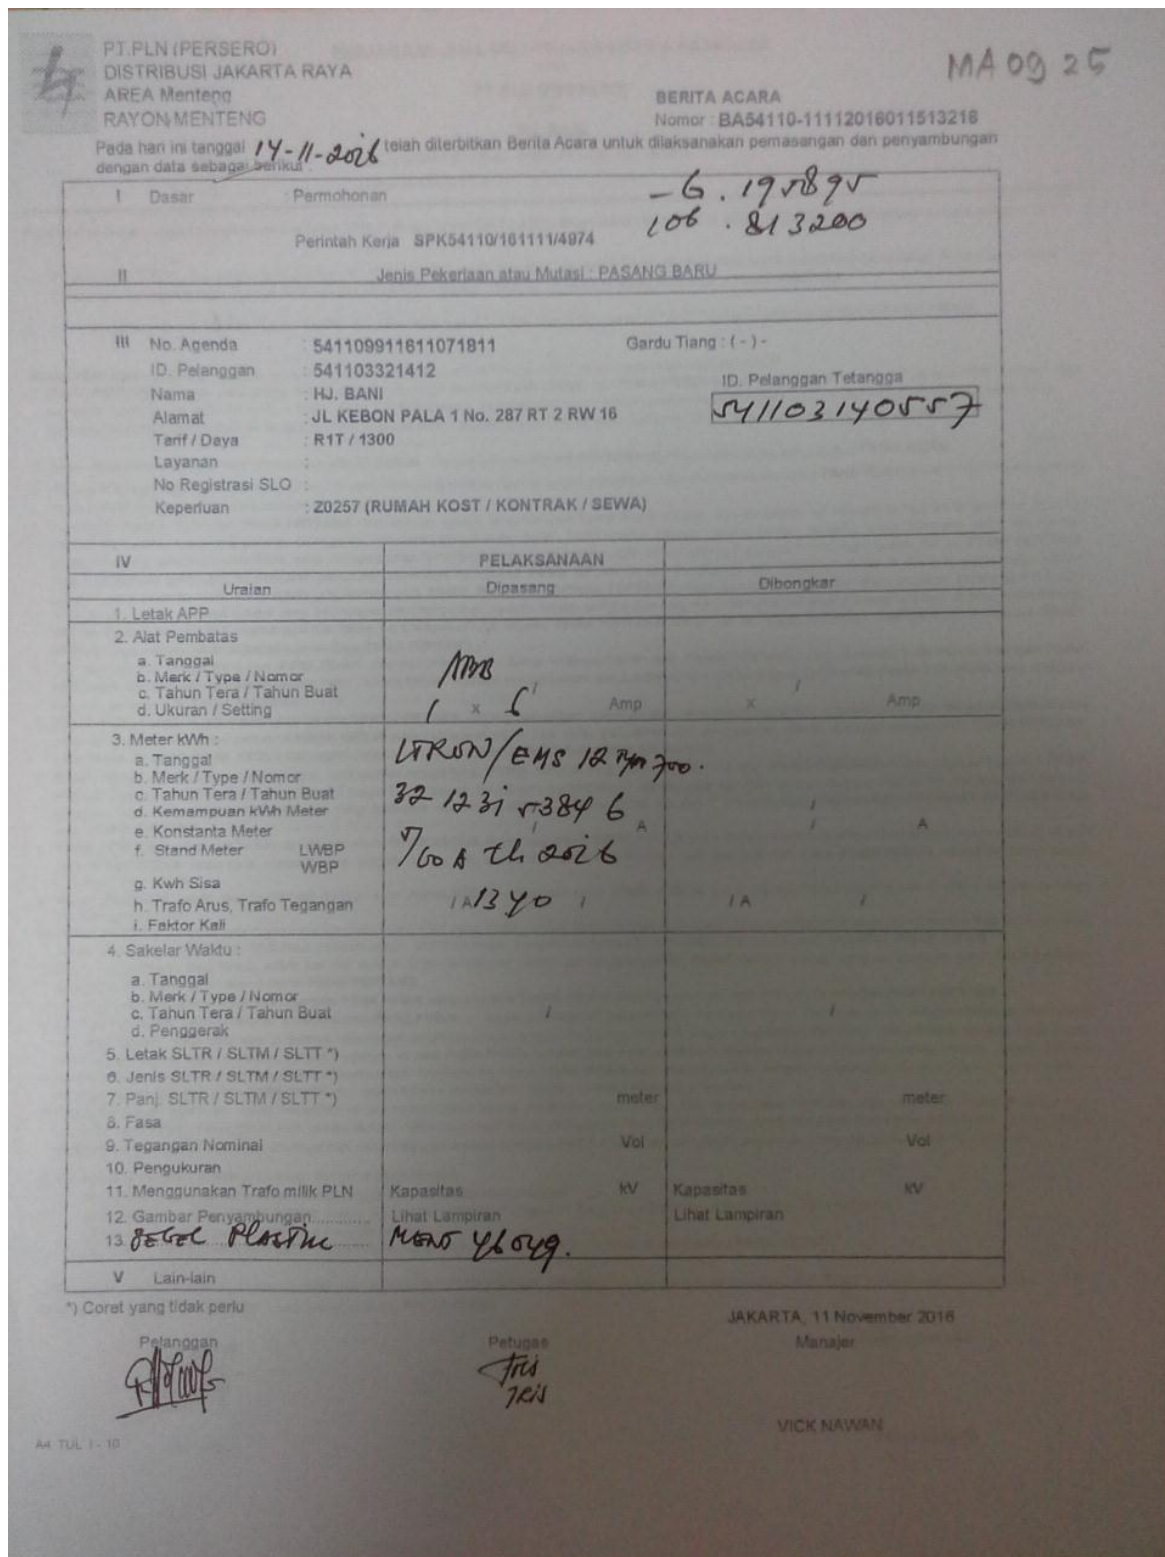 PT.PLN (PERSERO)
DISTRIBUSI JAKARTA RAYA
AREA Menteng
RAYON MENTENG
MA 09 25
BERITA ACARA
Nomor : BA54110-11112016011513218
Pada hari ini tanggal 14-11-2016 telah diterbitkan Berita Acara untuk dilaksanakan pemasangan dan penyambungan
dengan data sebagai berikut :
I Dasar : Permohonan
-6.195895
106.813200
Perintah Kerja SPK54110/161111/4974
II Jenis Pekerjaan atau Mutasi : PASANG BARU
III No. Agenda : 541109911611071811 Gardu Tiang : ( - ) -
ID. Pelanggan : 541103321412 ID. Pelanggan Tetangga
Nama : HJ. BANI
541103140557
Alamat : JL KEBON PALA 1 No. 287 RT 2 RW 16
Tarif / Daya : R1T / 1300
Layanan :
No Registrasi SLO :
Keperluan : Z0257 (RUMAH KOST / KONTRAK / SEWA)
IV PELAKSANAAN
Uraian Dipasang Dibongkar
1. Letak APP
2. Alat Pembatas
a. Tanggal
b. Merk / Type / Nomor ABB /
c. Tahun Tera / Tahun Buat / /
d. Ukuran / Setting 1 x 6 Amp x Amp
3. Meter kWh :
a. Tanggal ITRON/EMS 12
b. Merk / Type / Nomor
c. Tahun Tera / Tahun Buat 32 12 31 5384 6 /
d. Kemampuan kWh Meter / A / A
e. Konstanta Meter
f. Stand Meter LWBP 5/60 A th 2016
WBP
g. Kwh Sisa
h. Trafo Arus, Trafo Tegangan / A 1340 / / A /
i. Faktor Kali
4. Sakelar Waktu :
a. Tanggal
b. Merk / Type / Nomor
c. Tahun Tera / Tahun Buat / /
d. Penggerak
5. Letak SLTR / SLTM / SLTT *)
6. Jenis SLTR / SLTM / SLTT *)
7. Panj. SLTR / SLTM / SLTT *) meter meter
8. Fasa
9. Tegangan Nominal Vol Vol
10. Pengukuran
11. Menggunakan Trafo milik PLN Kapasitas kV Kapasitas kV
12. Gambar Penyambungan............ Lihat Lampiran Lihat Lampiran
13. SEGEL PLASTIK 46049.
V Lain-lain
*) Coret yang tidak perlu
JAKARTA, 11 November 2016
Pelanggan Petugas Manajer
IRIS
VICK NAWAN
A4 TUL I - 10